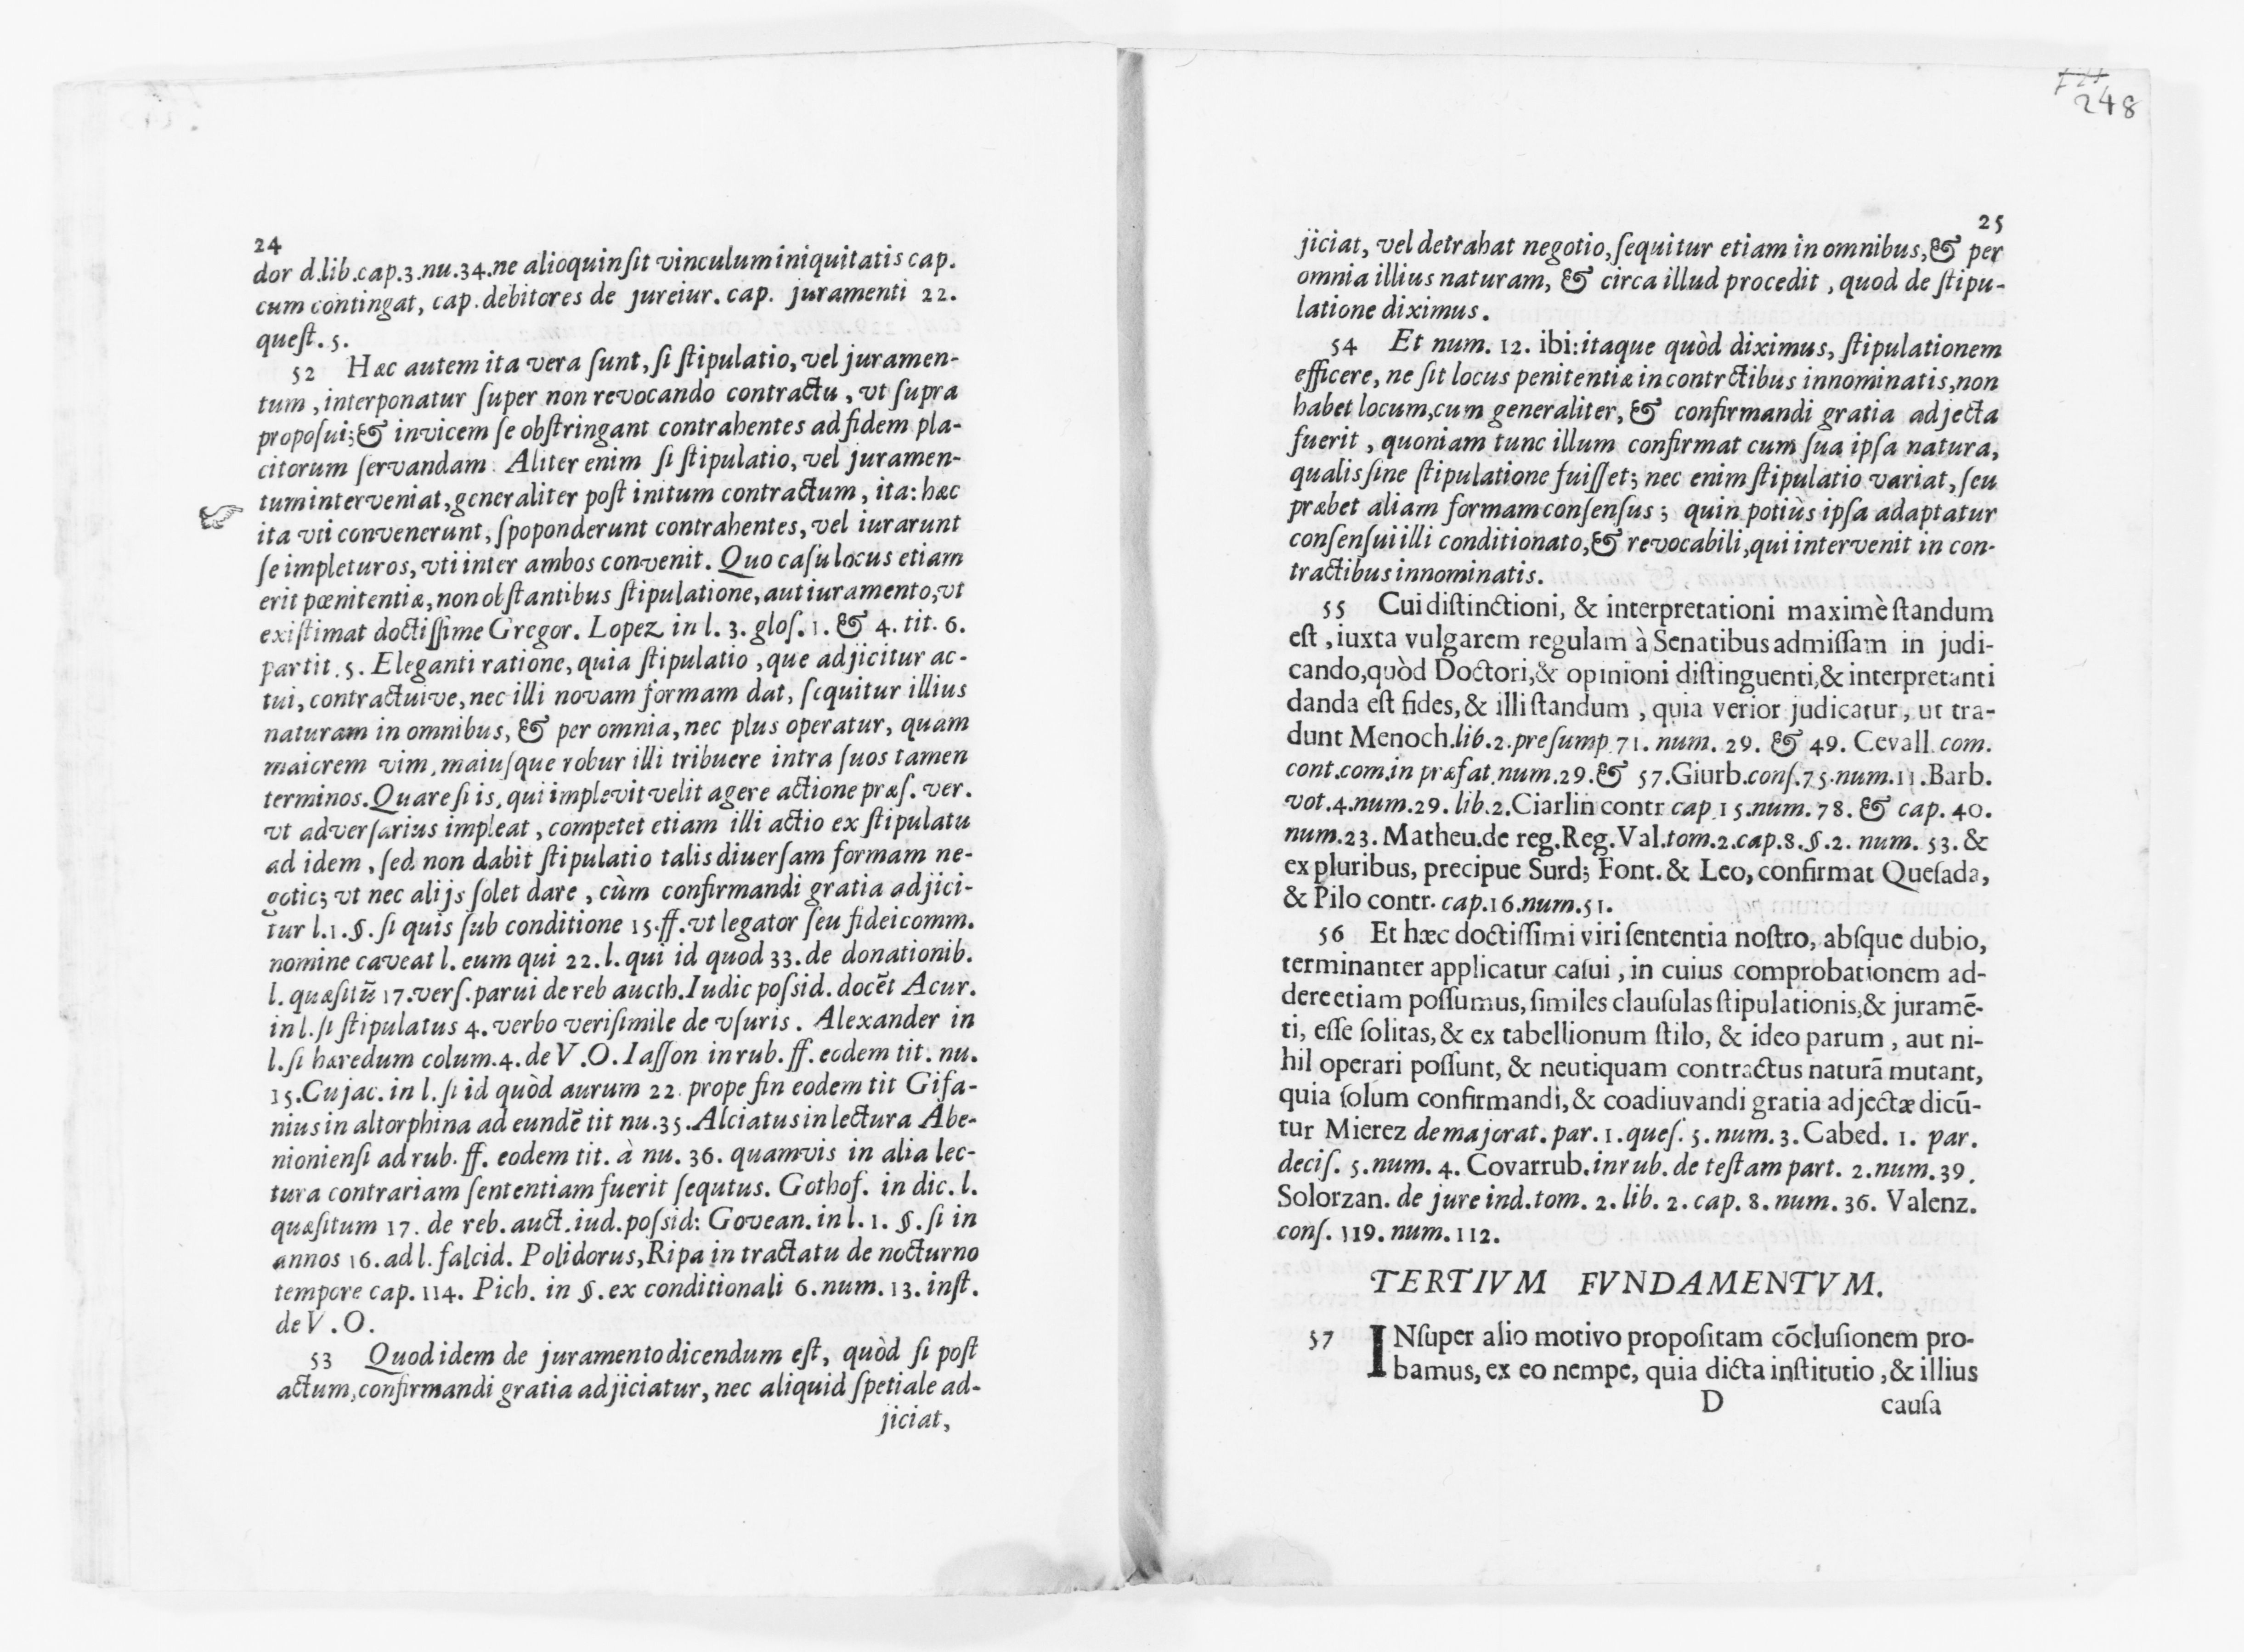 24
dor d.lib.cap.3.nu.34.ne alioquin ſit vinculum iniquitatis cap.
cum contingat, cap. debitores de jureiur. cap. juramenti 22.
queſt. 5.
52 Hæc autem ita vera ſunt, ſi ſtipulatio, vel juramen-
tum, interponatur ſuper non revocando contractu, vt ſupra
propoſui; & invicem ſe obſtringant contrahentes ad fidem pla-
citorum ſervandam. Aliter enim ſi ſtipulatio, vel juramen-
tum interveniat, generaliter poſt initum contractum, ita: hæc
ita vti convenerunt, ſpoponderunt contrahentes, vel iurarunt
ſe impleturos, vti inter ambos convenit. Quo caſu locus etiam
erit pœnitentiæ, non obſtantibus ſtipulatione, aut iuramento, vt
exiſtimat doctiſſime Gregor. Lopez in l. 3. gloſ. 1. & 4. tit. 6.
partit. 5. Eleganti ratione, quia ſtipulatio, que adjicitur ac-
tui, contractuive, nec illi novam formam dat, ſequitur illius
naturam in omnibus, & per omnia, nec plus operatur, quam
maiorem vim, maiuſque robur illi tribuere intra ſuos tamen
terminos. Quare ſi is, qui implevit velit agere actione præſ. ver.
vt adverſarius impleat, competet etiam illi actio ex ſtipulatu
ad idem, ſed non dabit ſtipulatio talis diuerſam formam ne-
gotio; vt nec alijs ſolet dare, cùm confirmandi gratia adjici-
tur l.1.§. ſi quis ſub conditione 15.ff.vt legator ſeu fideicomm.
nomine caveat l. eum qui 22.l. qui id quod 33. de donationib.
l. quæſitũ 17.verſ.parui de reb aucth.Iudic poſsid. docẽt Acur.
in l. ſi ſtipulatus 4. verbo veriſimile de vſuris. Alexander in
l. ſi hæredum colum.4. de V.O. Iaſſon in rub. ff. eodem tit. nu.
15.Cujac. in l. ſi id quòd aurum 22. prope fin eodem tit Gifa-
nius in altorphina ad eundẽ tit nu.35.Alciatus in lectura Abe-
nionienſi ad rub. ff. eodem tit. à nu. 36. quamvis in alia lec-
tura contrariam ſententiam fuerit ſequtus. Gothof. in dic. l.
quæſitum 17. de reb. auct. iud. poſsid: Govean. in l. 1. §. ſi in
annos 16. ad l. falcid. Polidorus, Ripa in tractatu de nocturno
tempore cap. 114. Pich. in §. ex conditionali 6. num. 13. inſt.
de V.O.
53 Quod idem de juramento dicendum eſt, quòd ſi poſt
actum, confirmandi gratia adjiciatur, nec aliquid ſpetiale ad-
jiciat,
248
25
jiciat, vel detrahat negotio, ſequitur etiam in omnibus, & per
omnia illius naturam, & circa illud procedit, quod de ſtipu-
latione diximus.
54 Et num. 12. ibi: itaque quòd diximus, ſtipulationem
efficere, ne ſit locus penitentiæ in contrctibus innominatis, non
habet locum, cum generaliter, & confirmandi gratia adjecta
fuerit, quoniam tunc illum confirmat cum ſua ipſa natura,
qualis ſine ſtipulatione fuiſſet; nec enim ſtipulatio variat, ſeu
præbet aliam formam conſenſus; quin potiùs ipſa adaptatur
conſenſui illi conditionato, & revocabili, qui intervenit in con-
tractibus innominatis.
55 Cui diſtinctioni, & interpretationi maximè ſtandum
eſt, iuxta vulgarem regulam à Senatibus admiſſam in judi-
cando, quòd Doctori, & opinioni diſtinguenti, & interpretanti
danda eſt fides, & illi ſtandum, quia verior judicatur, ut tra-
dunt Menoch.lib.2.preſump.71. num. 29. & 49. Cevall. com.
cont.com.in præfat.num.29.& 57.Giurb.conſ.75.num.11.Barb.
vot.4.num.29. lib.2.Ciarlin contr cap.15.num.78. & cap. 40.
num.23. Matheu.de reg.Reg.Val.tom.2.cap.8.§.2. num. 53. &
ex pluribus, precipue Surd; Font. & Leo, confirmat Queſada,
& Pilo contr. cap.16.num.51.
56 Et hæc doctiſſimi viri ſententia noſtro, abſque dubio,
terminanter applicatur caſui, in cuius comprobationem ad-
dere etiam poſſumus, ſimiles clauſulas ſtipulationis, & juramẽ-
ti, eſſe ſolitas, & ex tabellionum ſtilo, & ideo parum, aut ni-
hil operari poſſunt, & neutiquam contractus naturã mutant,
quia ſolum confirmandi, & coadiuvandi gratia adjectæ dicũ-
tur Mierez de majorat. par. 1. queſ. 5. num. 3. Cabed. 1. par.
deciſ. 5. num. 4. Covarrub. in rub. de teſtam part. 2. num. 39.
Solorzan. de jure ind. tom. 2. lib. 2. cap. 8. num. 36. Valenz.
conſ. 119. num. 112.
TERTIVM FVNDAMENTVM.
57 INſuper alio motivo propoſitam cõcluſionem pro-
bamus, ex eo nempe, quia dicta inſtitutio, & illius
D cauſa